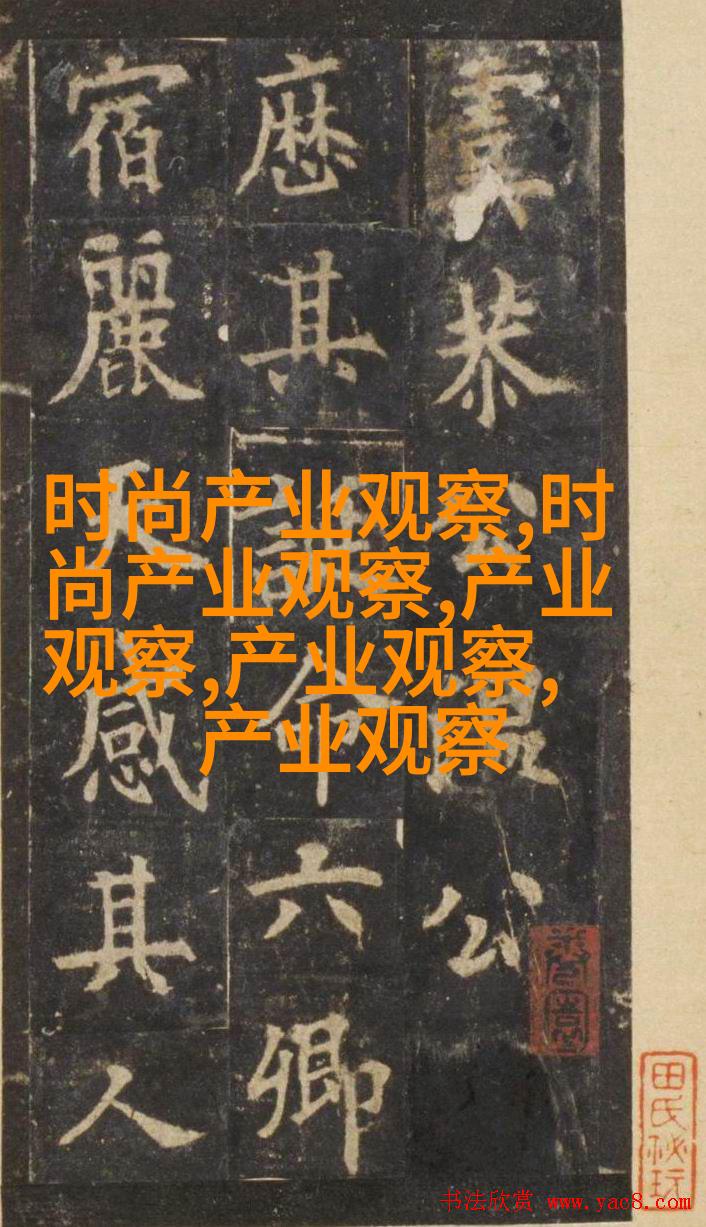 恭公公
厯其命六卿
宿麗天感其人
时尚产业观察,时
尚产业观察,产业
观察,产业观察,
产业观察
田氏秘玩
书法欣赏 www.yac8.com